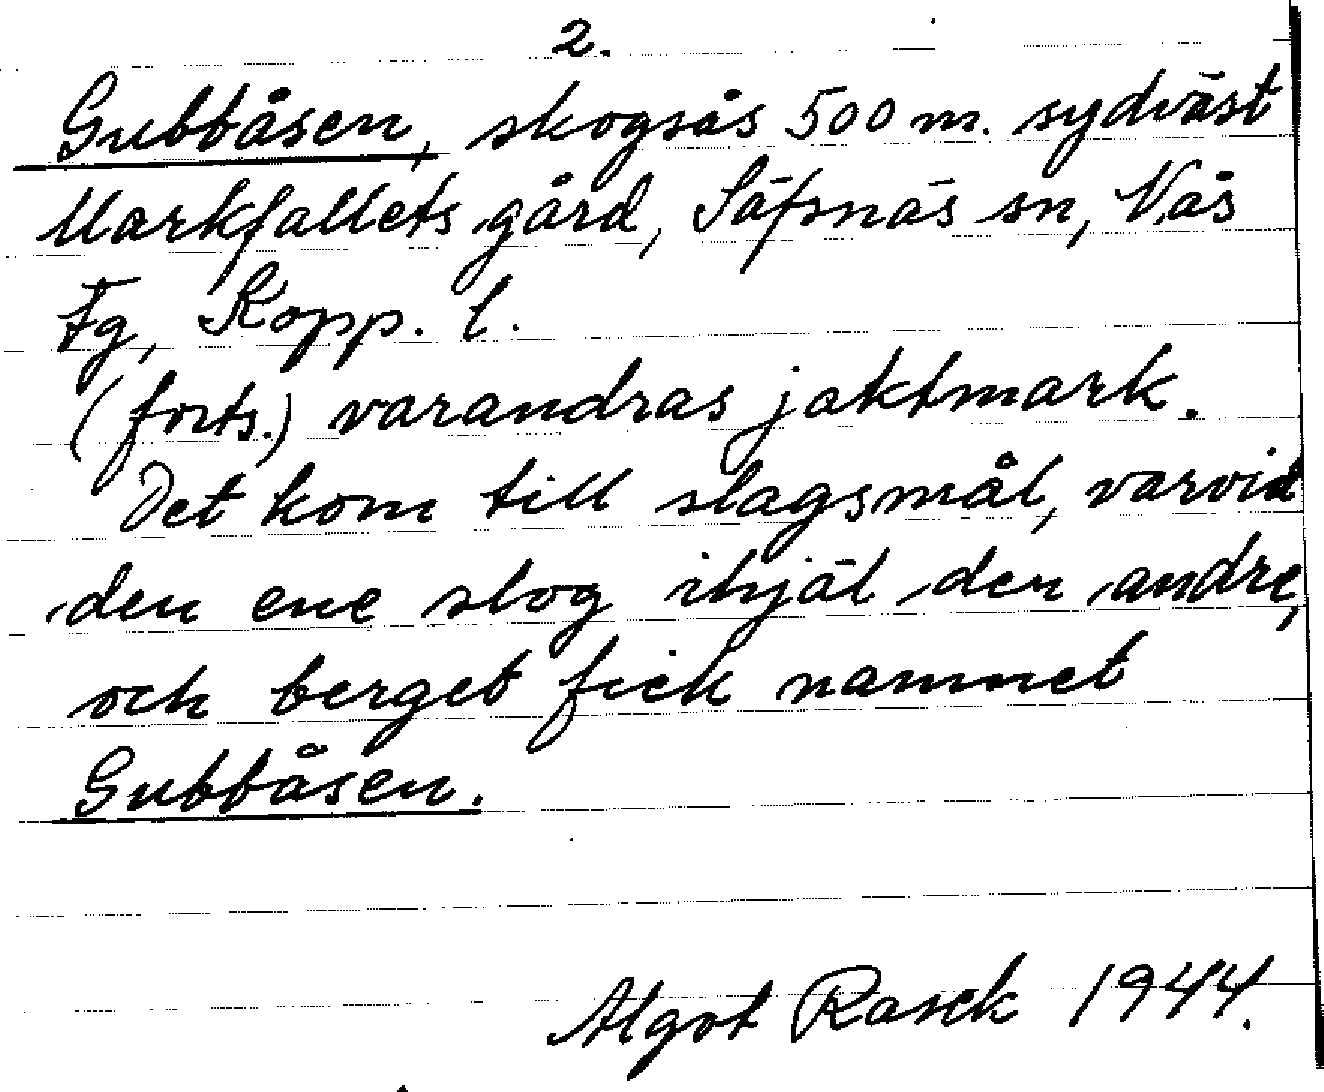 2.
Gubbåsen, skogsås 500 m. sydväst
Markfallets gård, Säfsnäs sn, Nås
Fg, Kopp. l.
(forts.) varandras jaktmark.
Det kom till slagsmål, varvid
den ene slog ihjäl den andre,
och berget fick namnet
Gubbåsen.
Algot Rasck 1944.